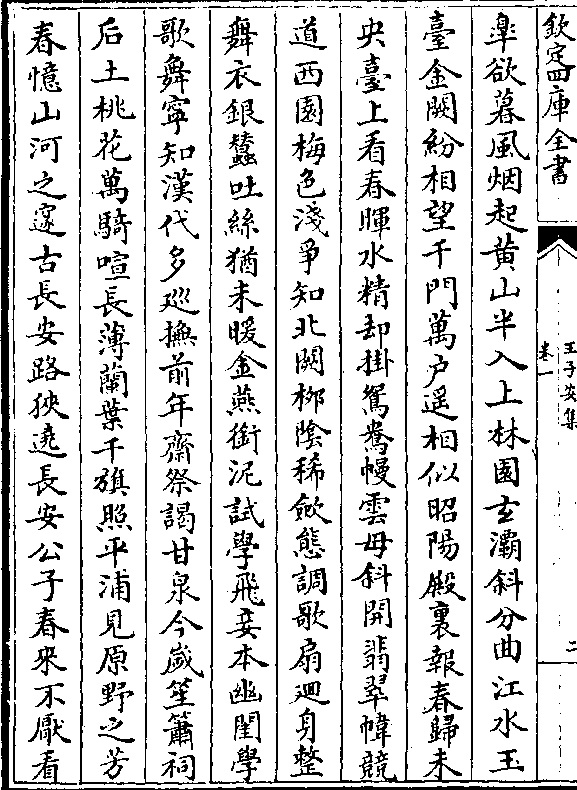 欽定四庫全書
王子安集
卷一
二
臯欲暮風烟起黄山半入上林園玄灞斜分曲江水玉
臺金闕紛相望千門萬户遥相似昭陽殿裏報春歸未
央臺上看春暉水精却掛鴛鴦幔雲母斜開翡翠幃競
道西園梅色淺爭知北闕栁陰稀斂態調歌扇迴身整
舞衣銀蠶吐絲猶未暖金燕銜泥試學飛妾本幽閨學
歌舞寧知漢代多巡撫前年齋祭謁甘泉今嵗笙簫祠
后土桃花萬騎喧長薄蘭葉千旗照平浦見原野之芳
春憶山河之邃古長安路狹遶長安公子春來不厭看